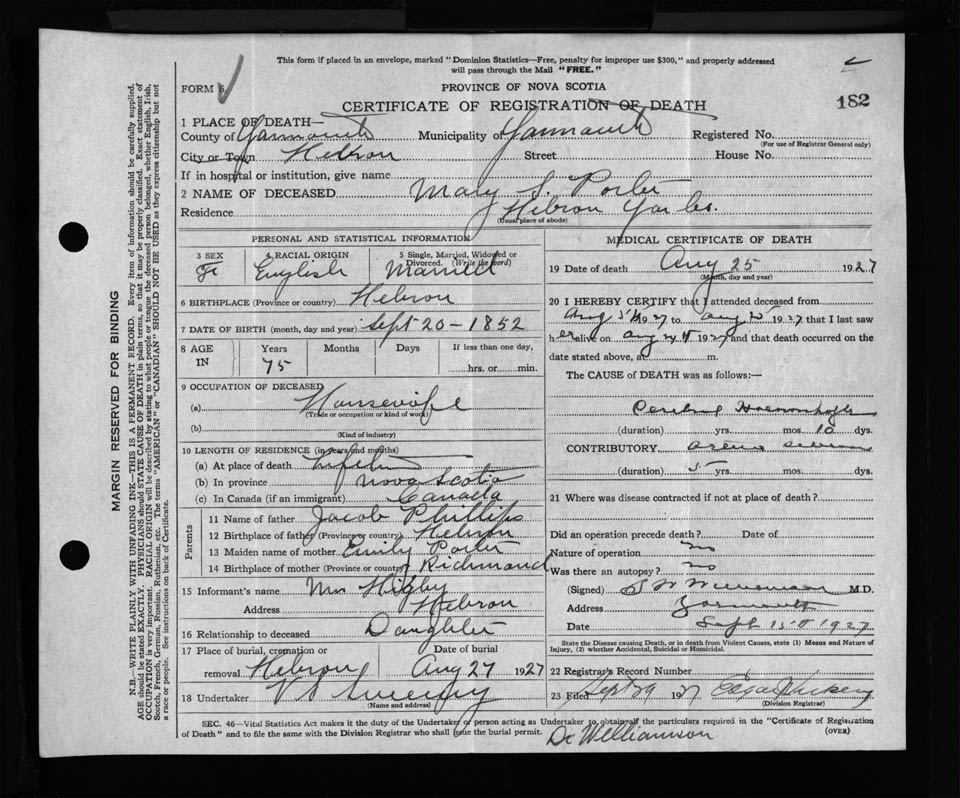 This form if placed in an envelope, marked "Dominion Statistics—Free, penalty for improper use $300," and properly addressed
will pass through the Mail "FREE."
FORM 6
PROVINCE OF NOVA SCOTIA
CERTIFICATE OF REGISTRATION OF DEATH
182
1 PLACE OF DEATH—
County of Yarmouth Municipality of Yarmouth Registered No.
(For use of Registrar General only)
City or Town Hebron Street House No.
If in hospital or institution, give name
2 NAME OF DECEASED Mary S. Porter
Residence Hebron Yar Co.
(Usual place of abode)
PERSONAL AND STATISTICAL INFORMATION
3 SEX 4 RACIAL ORIGIN 5 Single, Married, Widowed or Divorced. (Write the word)
F English Married
6 BIRTHPLACE (Province or country) Hebron
7 DATE OF BIRTH (month, day and year) Sept 20 - 1852
8 AGE IN Years Months Days If less than one day,
75 hrs. or min.
9 OCCUPATION OF DECEASED
(a) Housewife
(Trade or occupation or kind of work)
(b)
(Kind of industry)
10 LENGTH OF RESIDENCE (in years and months)
(a) At place of death
(b) In province Nova Scotia
(c) In Canada (if an immigrant) Canada
Parents
11 Name of father Jacob Phillips
12 Birthplace of father (Province or country) Hebron
13 Maiden name of mother Emily Porter
14 Birthplace of mother (Province or country) Richmond
15 Informant's name Mrs Higby
Address Hebron
16 Relationship to deceased Daughter
17 Place of burial, cremation or removal Hebron Date of burial Aug 27 1927
18 Undertaker V S Sweeny
(Name and address)
MEDICAL CERTIFICATE OF DEATH
19 Date of death Aug 25 1927
(Month, day and year)
20 I HEREBY CERTIFY that I attended deceased from
Aug 1927 to Aug 25 1927 that I last saw
her alive on Aug 24th 1927 and that death occurred on the
date stated above, at m.
The CAUSE of DEATH was as follows:—
Cerebral Haemorrhage
(duration) yrs. mos. 10 dys.
CONTRIBUTORY
(duration) 5 yrs. mos. dys.
21 Where was disease contracted if not at place of death?
Did an operation precede death? no Date of
Nature of operation
Was there an autopsy? no
(Signed) M.D.
Address Yarmouth
Date Sept 15th 1927
State the Disease causing Death, or in death from Violent Causes, state (1) Means and Nature of
Injury, (2) whether Accidental, Suicidal or Homicidal.
22 Registrar's Record Number
23 Filed Sept 29 1927 Edgar
(Division Registrar)
SEC. 46—Vital Statistics Act makes it the duty of the Undertaker or person acting as Undertaker to obtain all the particulars required in the "Certificate of Registration
of Death" and to file the same with the Division Registrar who shall issue the burial permit.
(OVER)
Dr Williamson
MARGIN RESERVED FOR BINDING
N.B.—WRITE PLAINLY WITH UNFADING INK—THIS IS A PERMANENT RECORD. Every item of information should be carefully supplied.
AGE should be stated EXACTLY. PHYSICIANS should STATE CAUSE OF DEATH in plain terms, so that it may be properly classified. Exact statement of
OCCUPATION is very important. RACIAL ORIGIN will be described by stating to what people or tongue the deceased person belonged, whether English, Irish,
Scotch, French, German, Russian, Ruthenian, etc. The terms "AMERICAN" or "CANADIAN" SHOULD NOT BE USED as they express citizenship but not
a race or people. See instructions on back of Certificate.